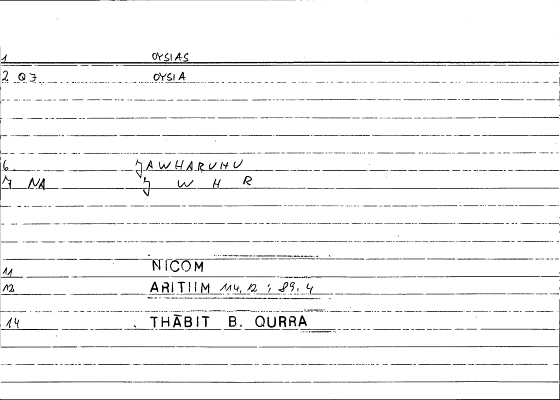 1 OYSIAS
2 Q J OYSIA
6 JAWHARUHU
7 NA J W H R
11 NICOM
12 ARITIIM 114, 12 ; 89, 4
14 THĀBIT B. QURRA